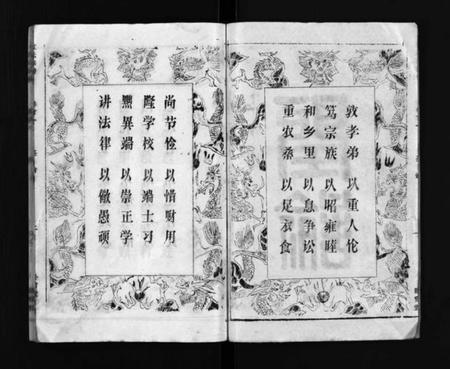 敦孝弟 以重人伦
笃宗族 以昭雍睦
和乡里 以息争讼
重农桑 以足衣食
尚节俭 以惜财用
隆学校 以端士习
黑异端 以崇正学
讲法律 以儆愚顽